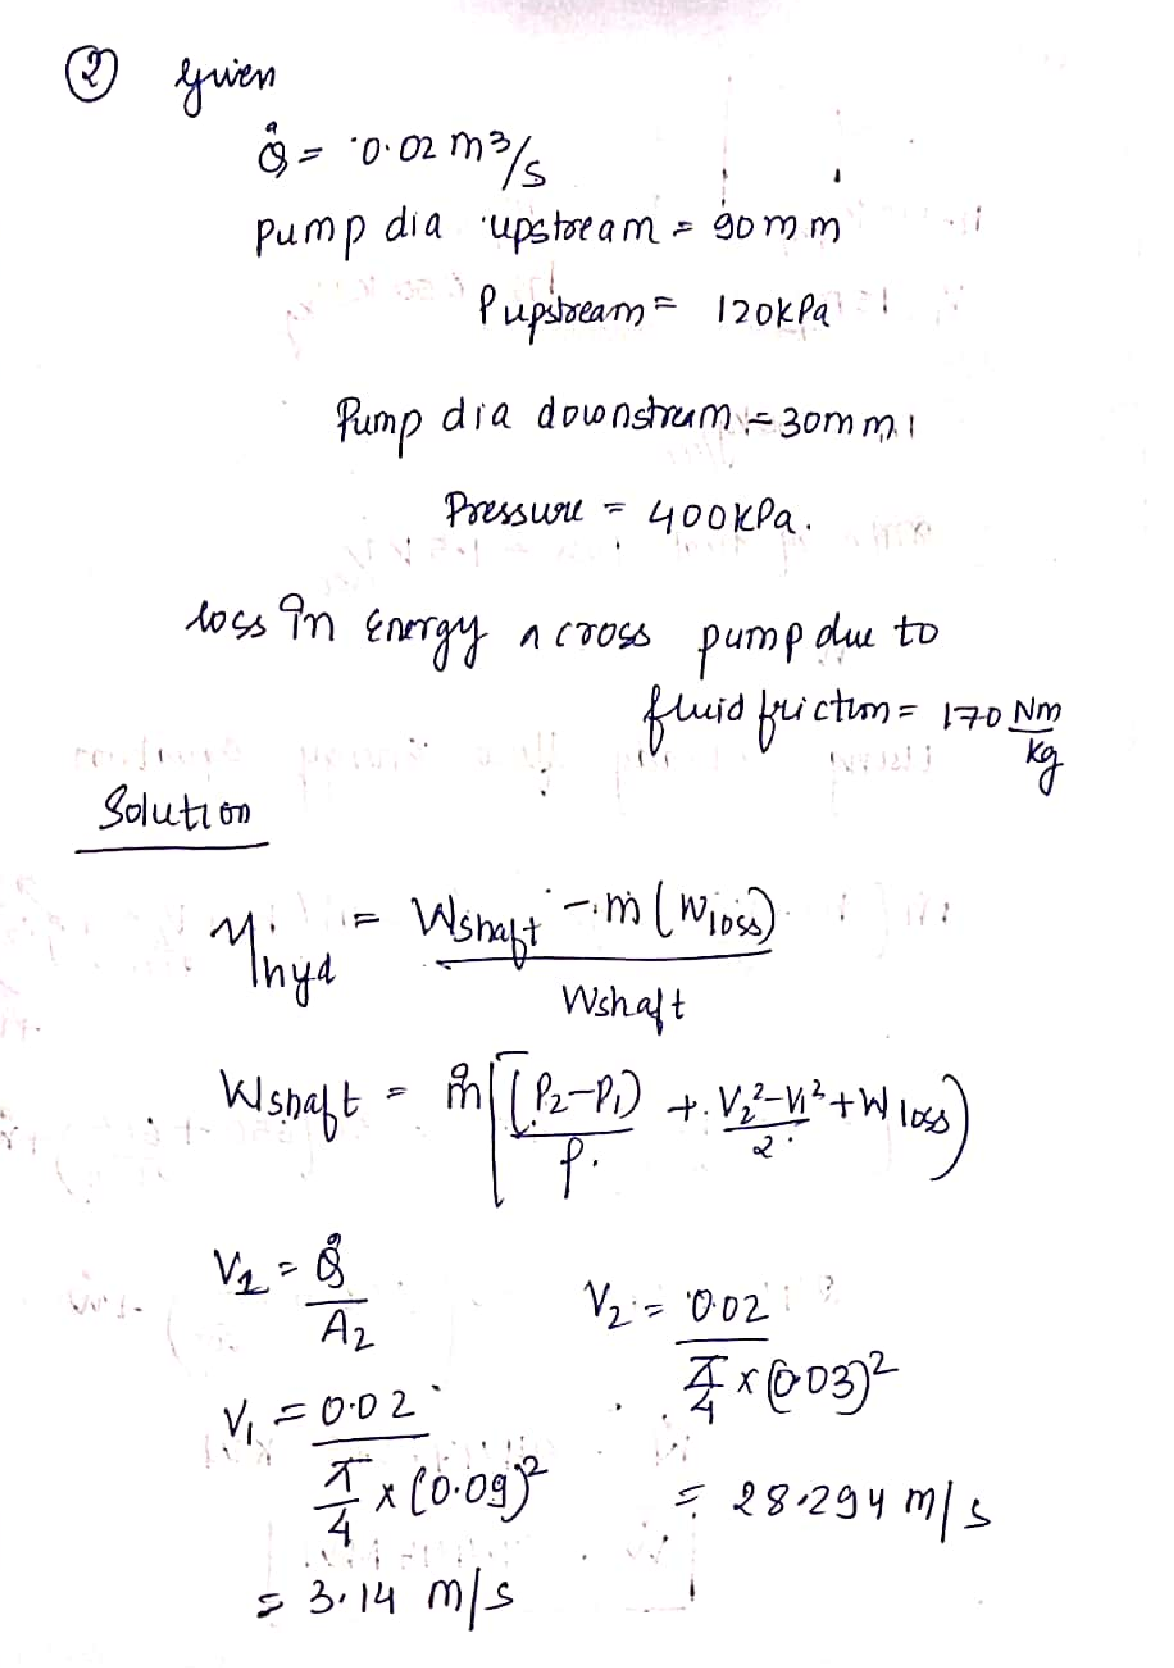 ② Given
Q̇ = 0.02 m³/s
pump dia upstream = 90mm
Pupstream = 120kPa
Pump dia downstrem = 30mm
Pressure = 400kPa.
loss in Energy across pump due to
fluid friction = 170 Nm/kg
Solution
ηhyd = (Wshaft - ṁ(Wloss)) / Wshaft
Wshaft = ṁ[(P2-P1)/ρ + (V2²-V1²)/2 + Wloss)
V1 = Q̇/A2
V2 = 0.02 / (π/4 x (0.03)²)
V1 = 0.02 / (π/4 x (0.09)²)
= 28.294 m/s
= 3.14 m/s